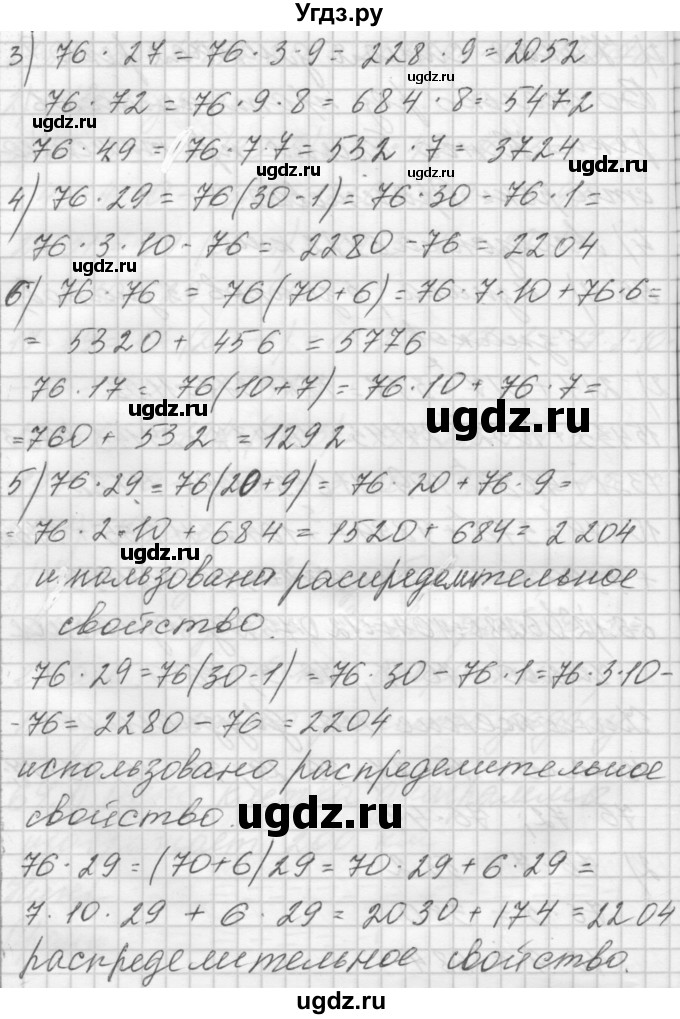 Угдз.ру
3) 76 · 27 = 76 · 3 · 9 = 228 · 9 = 2052
ugdz.ru
76 · 72 = 76 · 9 · 8 = 684 · 8 = 5472
ugdz.ru
76 · 49 = 76 · 7 · 7 = 532 · 7 = 3724
ugdz.ru ugdz.ru
4) 76 · 29 = 76(30 - 1) = 76 · 30 - 76 · 1 =
76 · 3 · 10 - 76 = 2280 - 76 = 2204
ugdz.ru
6) 76 · 76 = 76(70 + 6) = 76 · 7 · 10 + 76 · 6 =
= 5320 + 456 = 5776
76 · 17 = 76(10 + 7) = 76 · 10 + 76 · 7 =
ugdz.ru ugdz.ru
= 760 + 532 = 1292
5) 76 · 29 = 76(20 + 9) = 76 · 20 + 76 · 9 =
= 76 · 2 · 10 + 684 = 1520 + 684 = 2204
ugdz.ru
использовано распределительное
свойство.
76 · 29 = 76(30 - 1) = 76 · 30 - 76 · 1 = 76 · 3 · 10 -
- 76 = 2280 - 76 = 2204
ugdz.ru
использовано распределительное
свойство.
ugdz.ru
76 · 29 = (70 + 6)29 = 70 · 29 + 6 · 29 =
7 · 10 · 29 + 6 · 29 = 2030 + 174 = 2204
распределительное свойство.
ugdz.ru